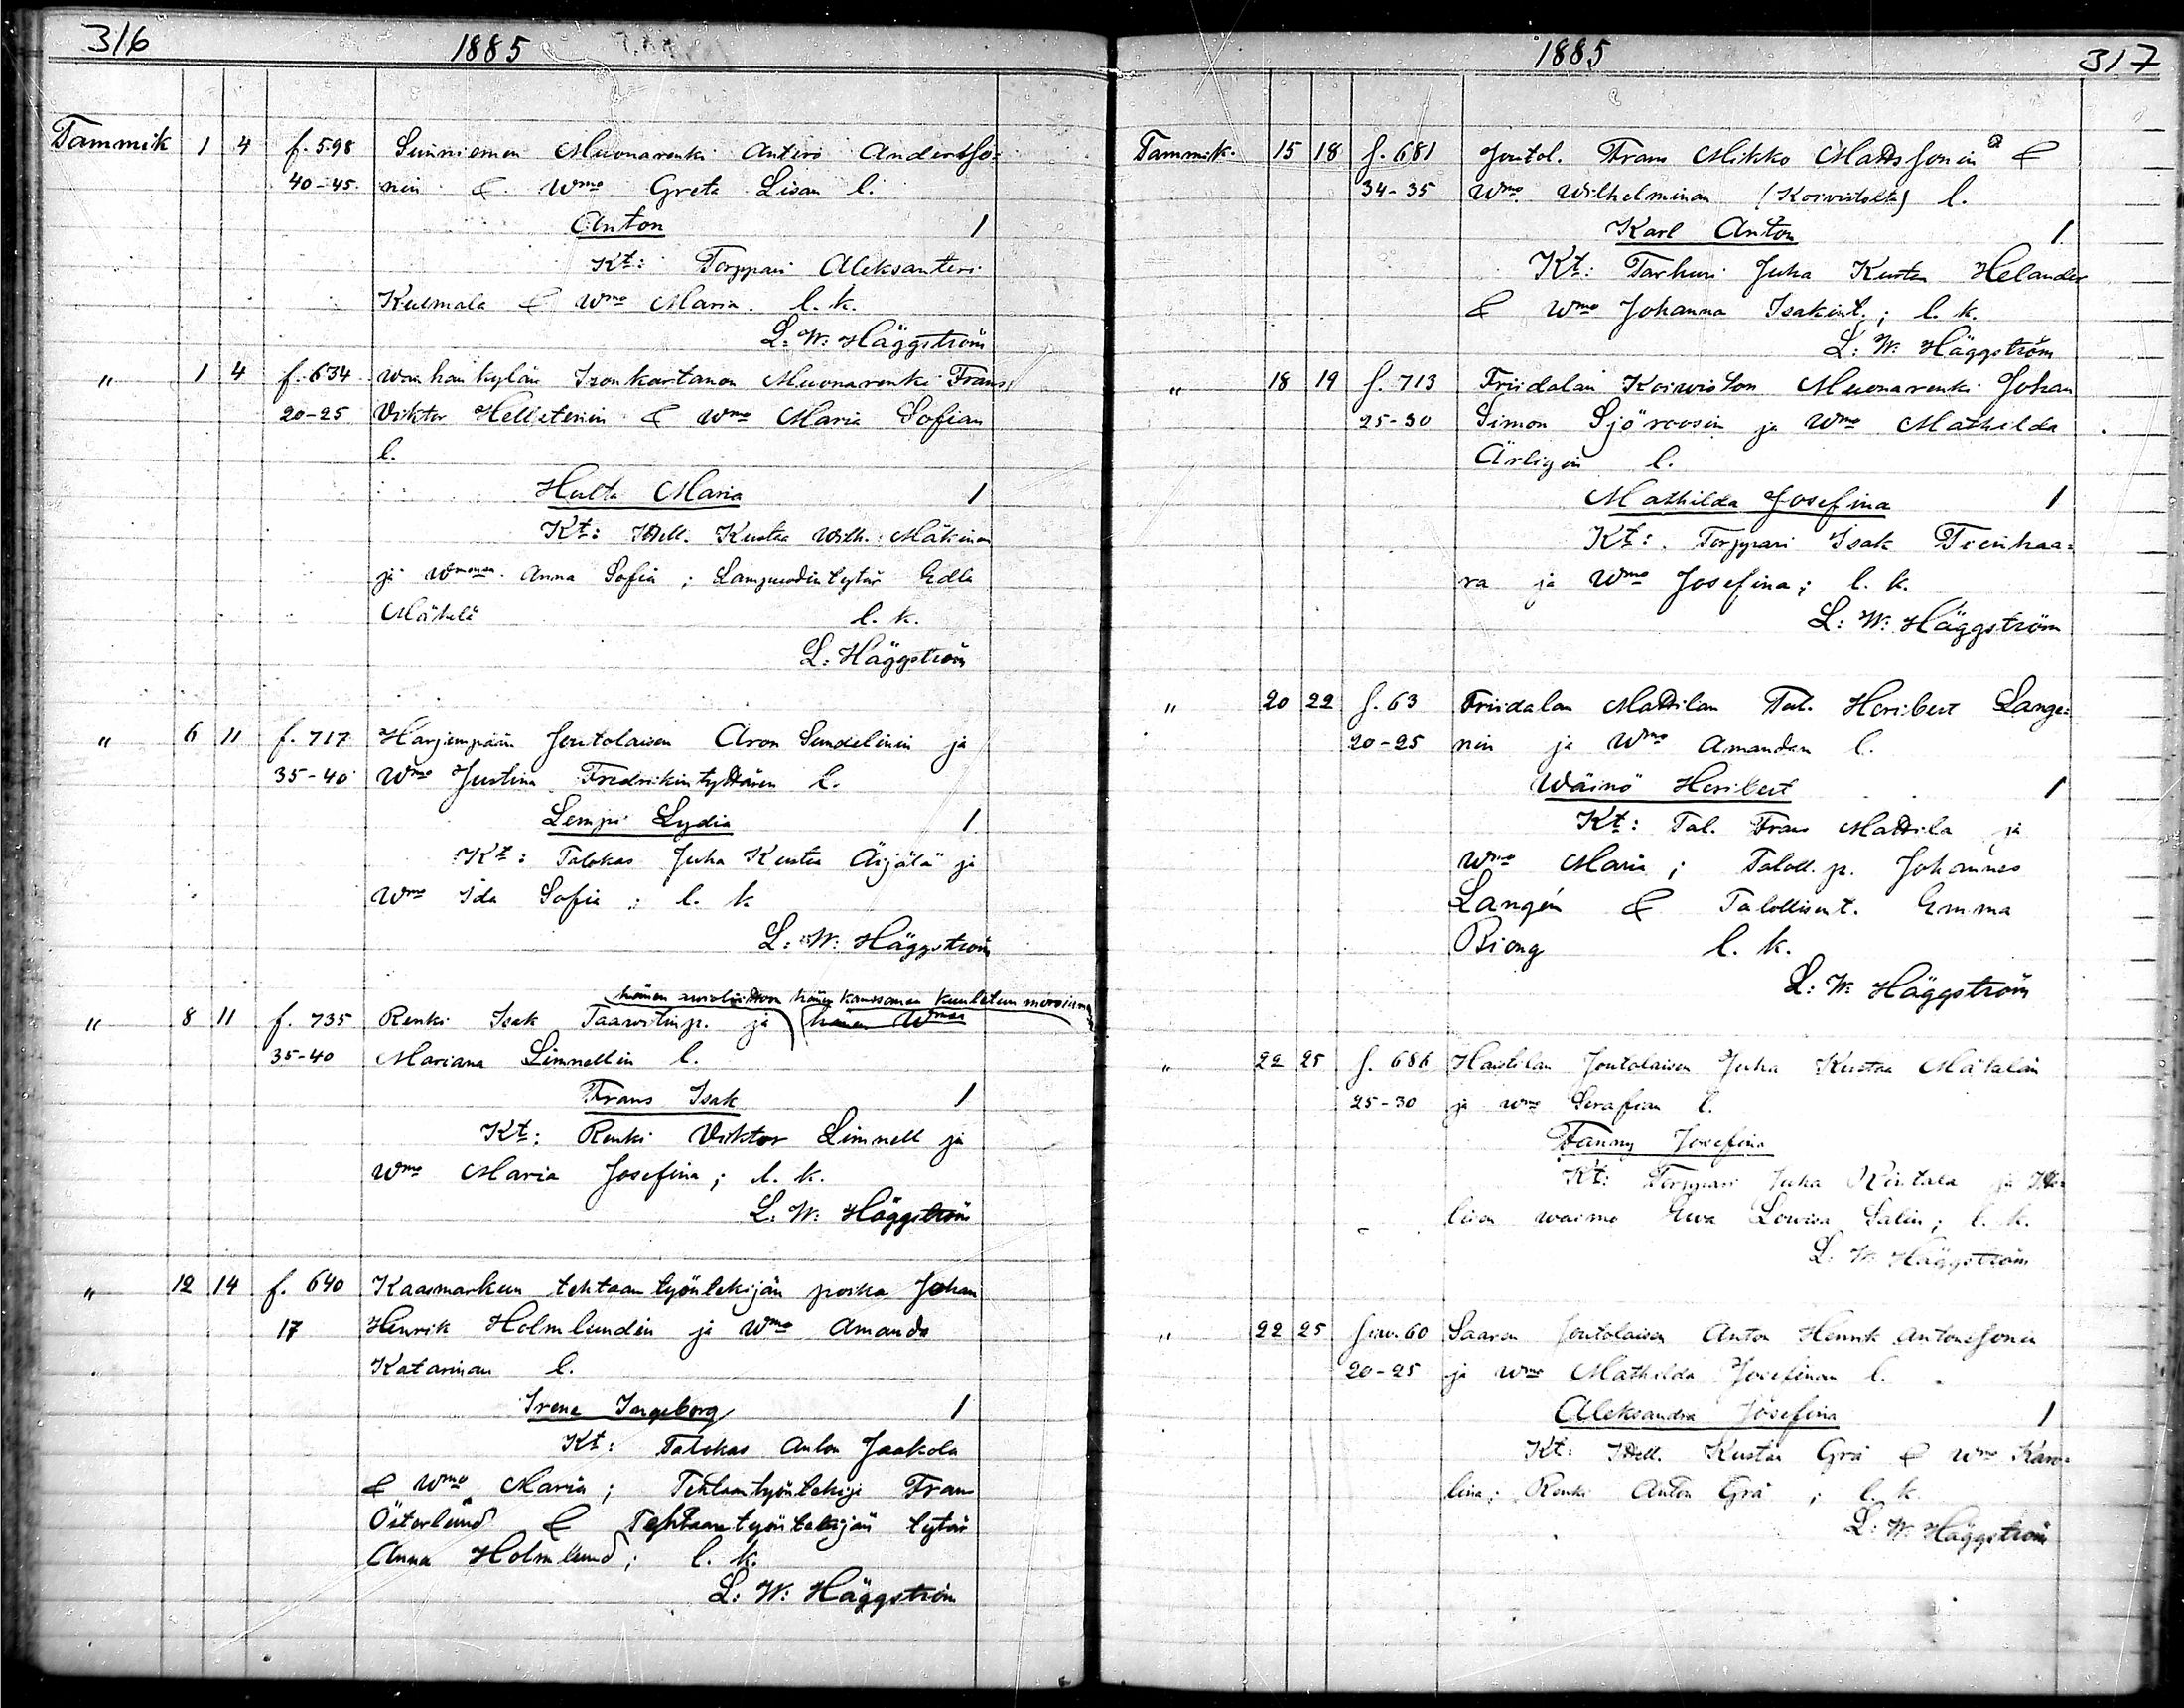 316
1885
Tammik 1 4 f. 598 Sunniemen Muonarenki Anteri Andersso=
40-45. nin & Wmo Greta Lisan l.
Anton 1
Kt: Torppari Aleksanteri
Kulmala & Wmo Maria. l. k.
L: W: Häggström
" 1 4 f. 634 Wanhankylän Isonkartanon Muonarenki Frans
20-25 Viktor Helleténin & Wmo Maria Sofian
l.
Hulta Maria 1
Kt: Itsell. Kustaa Wilh. Mäkinen
ja Wmonsa Anna Sofia; Lampuodin tytär Edla
Mäkelä l. k.
L: Häggström
" 6 11 f. 717 Harjunpään Joutolaisen Aron Sundelinin ja
35-40 Wmo Justina Fredrikintyttären l.
Lempi Lydia 1
Kt: Talokas Juha Kustaa Äijälä ja
Wmo Ida Sofia; l. k
L: W: Häggström
hänen awioliittoon hänen kanssansa kuulutetun morsiamen
" 8 11 f. 735 Renki Isak Taawetinp. ja hänen Wmon
35-40 Mariana Limnellin l.
Frans Isak 1
Kt: Renki Viktor Limnell ja
Wmo Maria Josefina; l. k.
L: W: Häggström
" 12 14 f. 640 Kaasmarkun tehtaan työntekijän poika Johan
17 Henrik Holmlundin ja Wmo Amanda
Katarinan l.
Irene Ingeborg 1
Kt: Talokas Anton Jaakola
& Wmo Maria; Tehtaantyöntekijä Frans
Österlund & Tehtaantyöntekijän tytär
Anna Holmlund; l. k.
L: W: Häggström
1885
317
Tammik. 15 18 f. 681 Joutol. Frans Mikko Mattssonin &
34-35 Wmo. Wilhelminan (Koivistolta) l.
Karl Anton 1.
Kt: Tarhuri Juha Kustaa Helander
& Wmo Johanna Isakint.; l. k.
L: W: Häggström
" 18 19 f. 713 Friidalan Koiwiston Muonarenki Johan
25-30 Simon Sjöroosin ja Wmo Mathilda
Ärligin l.
Mathilda Josefina 1
Kt: Torppari Isak Tienhaa=
ra ja Wmo Josefina; l. k.
L: W: Häggström
" 20 22 f. 63 Friidalan Mattilan Tal. Heribert Langé=
20-25 nin ja Wmo Amandan l.
Wäinö Heribert 1
Kt: Tal. Frans Mattila ja
Wmo Maria; Taloll. p. Johannes
Langén & Talollisent. Emma
Biong l. k.
L: W: Häggström
" 22 25 f. 686 Haistilan Joutolaisen Juha Kustaa Mäkelän
25-30 ja Wmo Serafian l.
Fanny Josefina
Kt: Torppari Juha Rintala ja Itse=
lisen waimo Ewa Lowisa Salin; l. k.
L. W: Häggström
" 22 25 60 Saaren Joutolaisen Anton Henrik Antonssonin
20-25 ja Wmo Mathilda Josefinan l.
Aleksandra Josefina 1
Kt: Itsell. Kustaa Grå & Wmo Karo=
lina; Renki Anton Grå; l. k.
L: W: Häggström